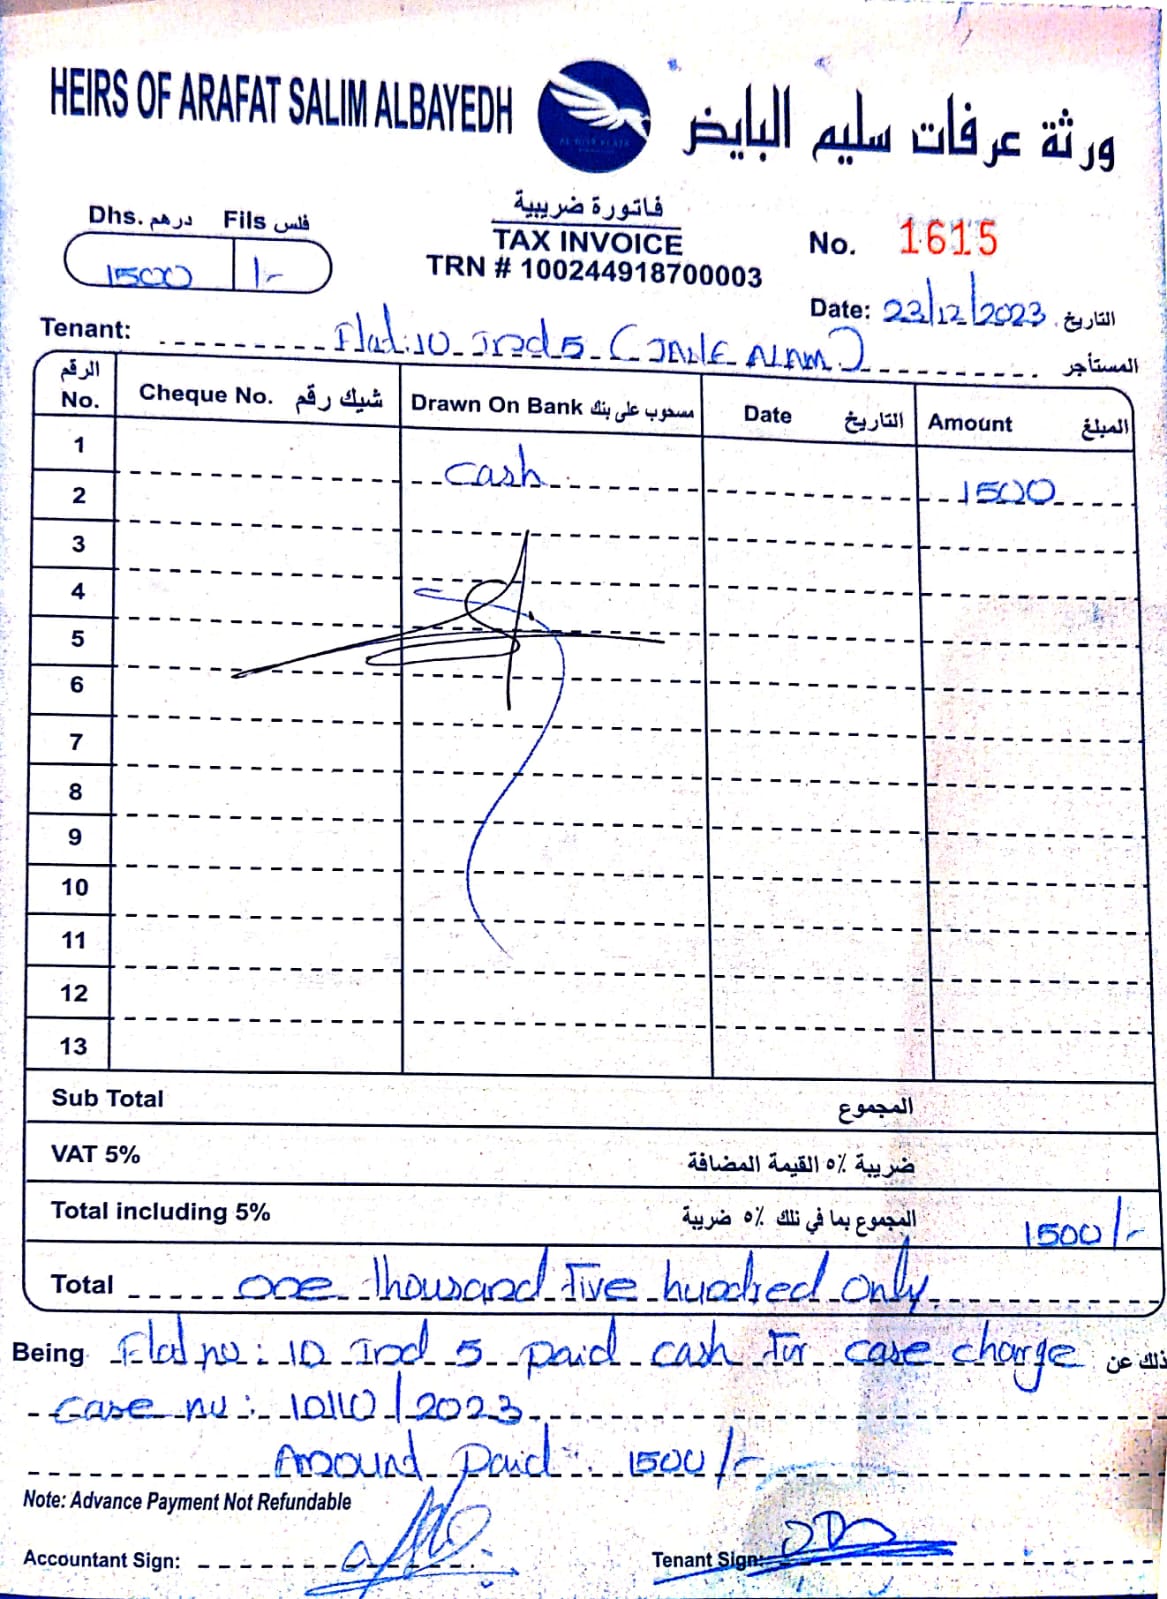 HEIRS OF ARAFAT SALIM ALBAYEDH
ورثة عرفات سليم البايض
Dhs. درهم Fils فلس
1500 /-
فاتورة ضريبية
TAX INVOICE
TRN # 100244918700003
No. 1615
Date: 23/12/2023 التاريخ
Tenant: Flat:10 Ind 5 ( ALAM ) المستأجر
الرقم No. Cheque No. شيك رقم Drawn On Bank مسحوب على بنك Date التاريخ Amount المبلغ
1
cash 1500
2
3
4
5
6
7
8
9
10
11
12
13
Sub Total المجموع
VAT 5% ضريبة ٥٪ القيمة المضافة
Total including 5% المجموع بما في تلك ٥٪ ضريبة 1500/-
Total one thousand five hundred only
Being Flat no: 10 Ind 5 paid cash for case charge ذلك عن
case no: 10110/2023
Amound paid: 1500/-
Note: Advance Payment Not Refundable
Accountant Sign: Tenant Sign: